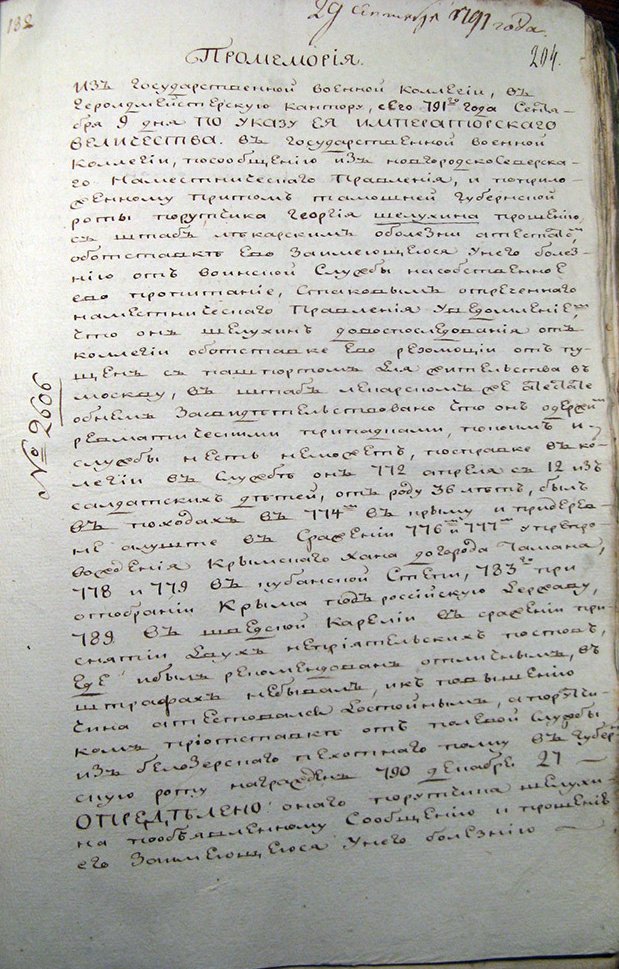 132
29 сентября 1791 года.
204.
Промеморія.
изъ государственной военной коллегіи, въ
геролдмейстерскую кантору, сего 791го года Сентя-
бря 9 дня ПО УКАЗУ ЕЯ ИМПЕРАТОРСКАГО
ВЕЛИЧЕСТВА. въ государственной военной
коллегіи, посообщению изъ новгородскосеверска-
го Наместническаго Правления, и поприло-
женному притомъ тамошней губернской
роты порутчика георгія шелухина прошению,
съ штабъ лѣкарскимъ оболезни атестатемъ
оботставке его Заимеющеюся унего болез-
нію отъ воинской Службы насобственное
его пропитание, Стаковымъ отреченного
наместническаго Правления уведомлениемъ
что онъ шелухинъ довоспоследования отъ
коллегіи оботставке его резолюціи отпу-
щенъ съ пашпортомъ для жительства въ
москву, въ штабъ лекарскомъ же атестате
обнемъ Засвидетельствовано что онъ одержимъ
ревматическими припадками, покоимъ и
службы несть неможетъ, посправке въ ко-
легіи въ Службе онъ 772 апреля съ 12 изъ
салдатскихъ дѣтей, отъ роду 36 летъ, былъ
въ походахъ въ 774мъ въ крыму и придерев-
не алуште въ Сражении 776м и 777мъ упрепро-
вождения Крымского хана догорода Тамана,
778 и 779 въ кубанской Степи, 783го при
отобрании Крыма подъ россійскую Державу,
789 въ шведской Карелии въ сражении при
снятии двухъ неприятельскихъ постовъ,
где ибылъ рекомендованъ отличнымъ, въ
штрафахъ небывалъ, икъ повышению
чина атестовался достойнымъ, апорутчи-
комъ приотставке отъ полевой Службы
изъ белозерского пехотнаго полку въ губерн
скую роту награжденъ 790 декабря 27 —
ОПРЕДѢЛЕНО онаго порутчика шелухи-
на пообъявленному Сообщению и прошению
его Заимеющеюся унего болезнію —
№ 2606